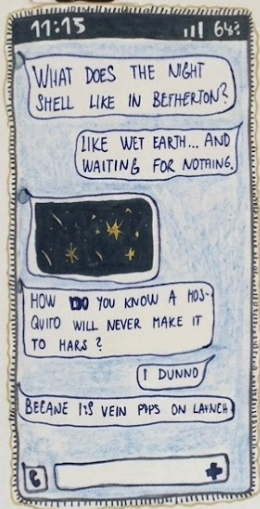 11:15 64%
WHAT DOES THE NIGHT
SHELL LIKE IN BETHERTON?
LIKE WET EARTH... AND
WAITING FOR NOTHING.
HOW DO YOU KNOW A MOS-
QUITO WILL NEVER MAKE IT
TO MARS?
I DUNNO
BECANE ITS VEIN POPS ON LAUNCH